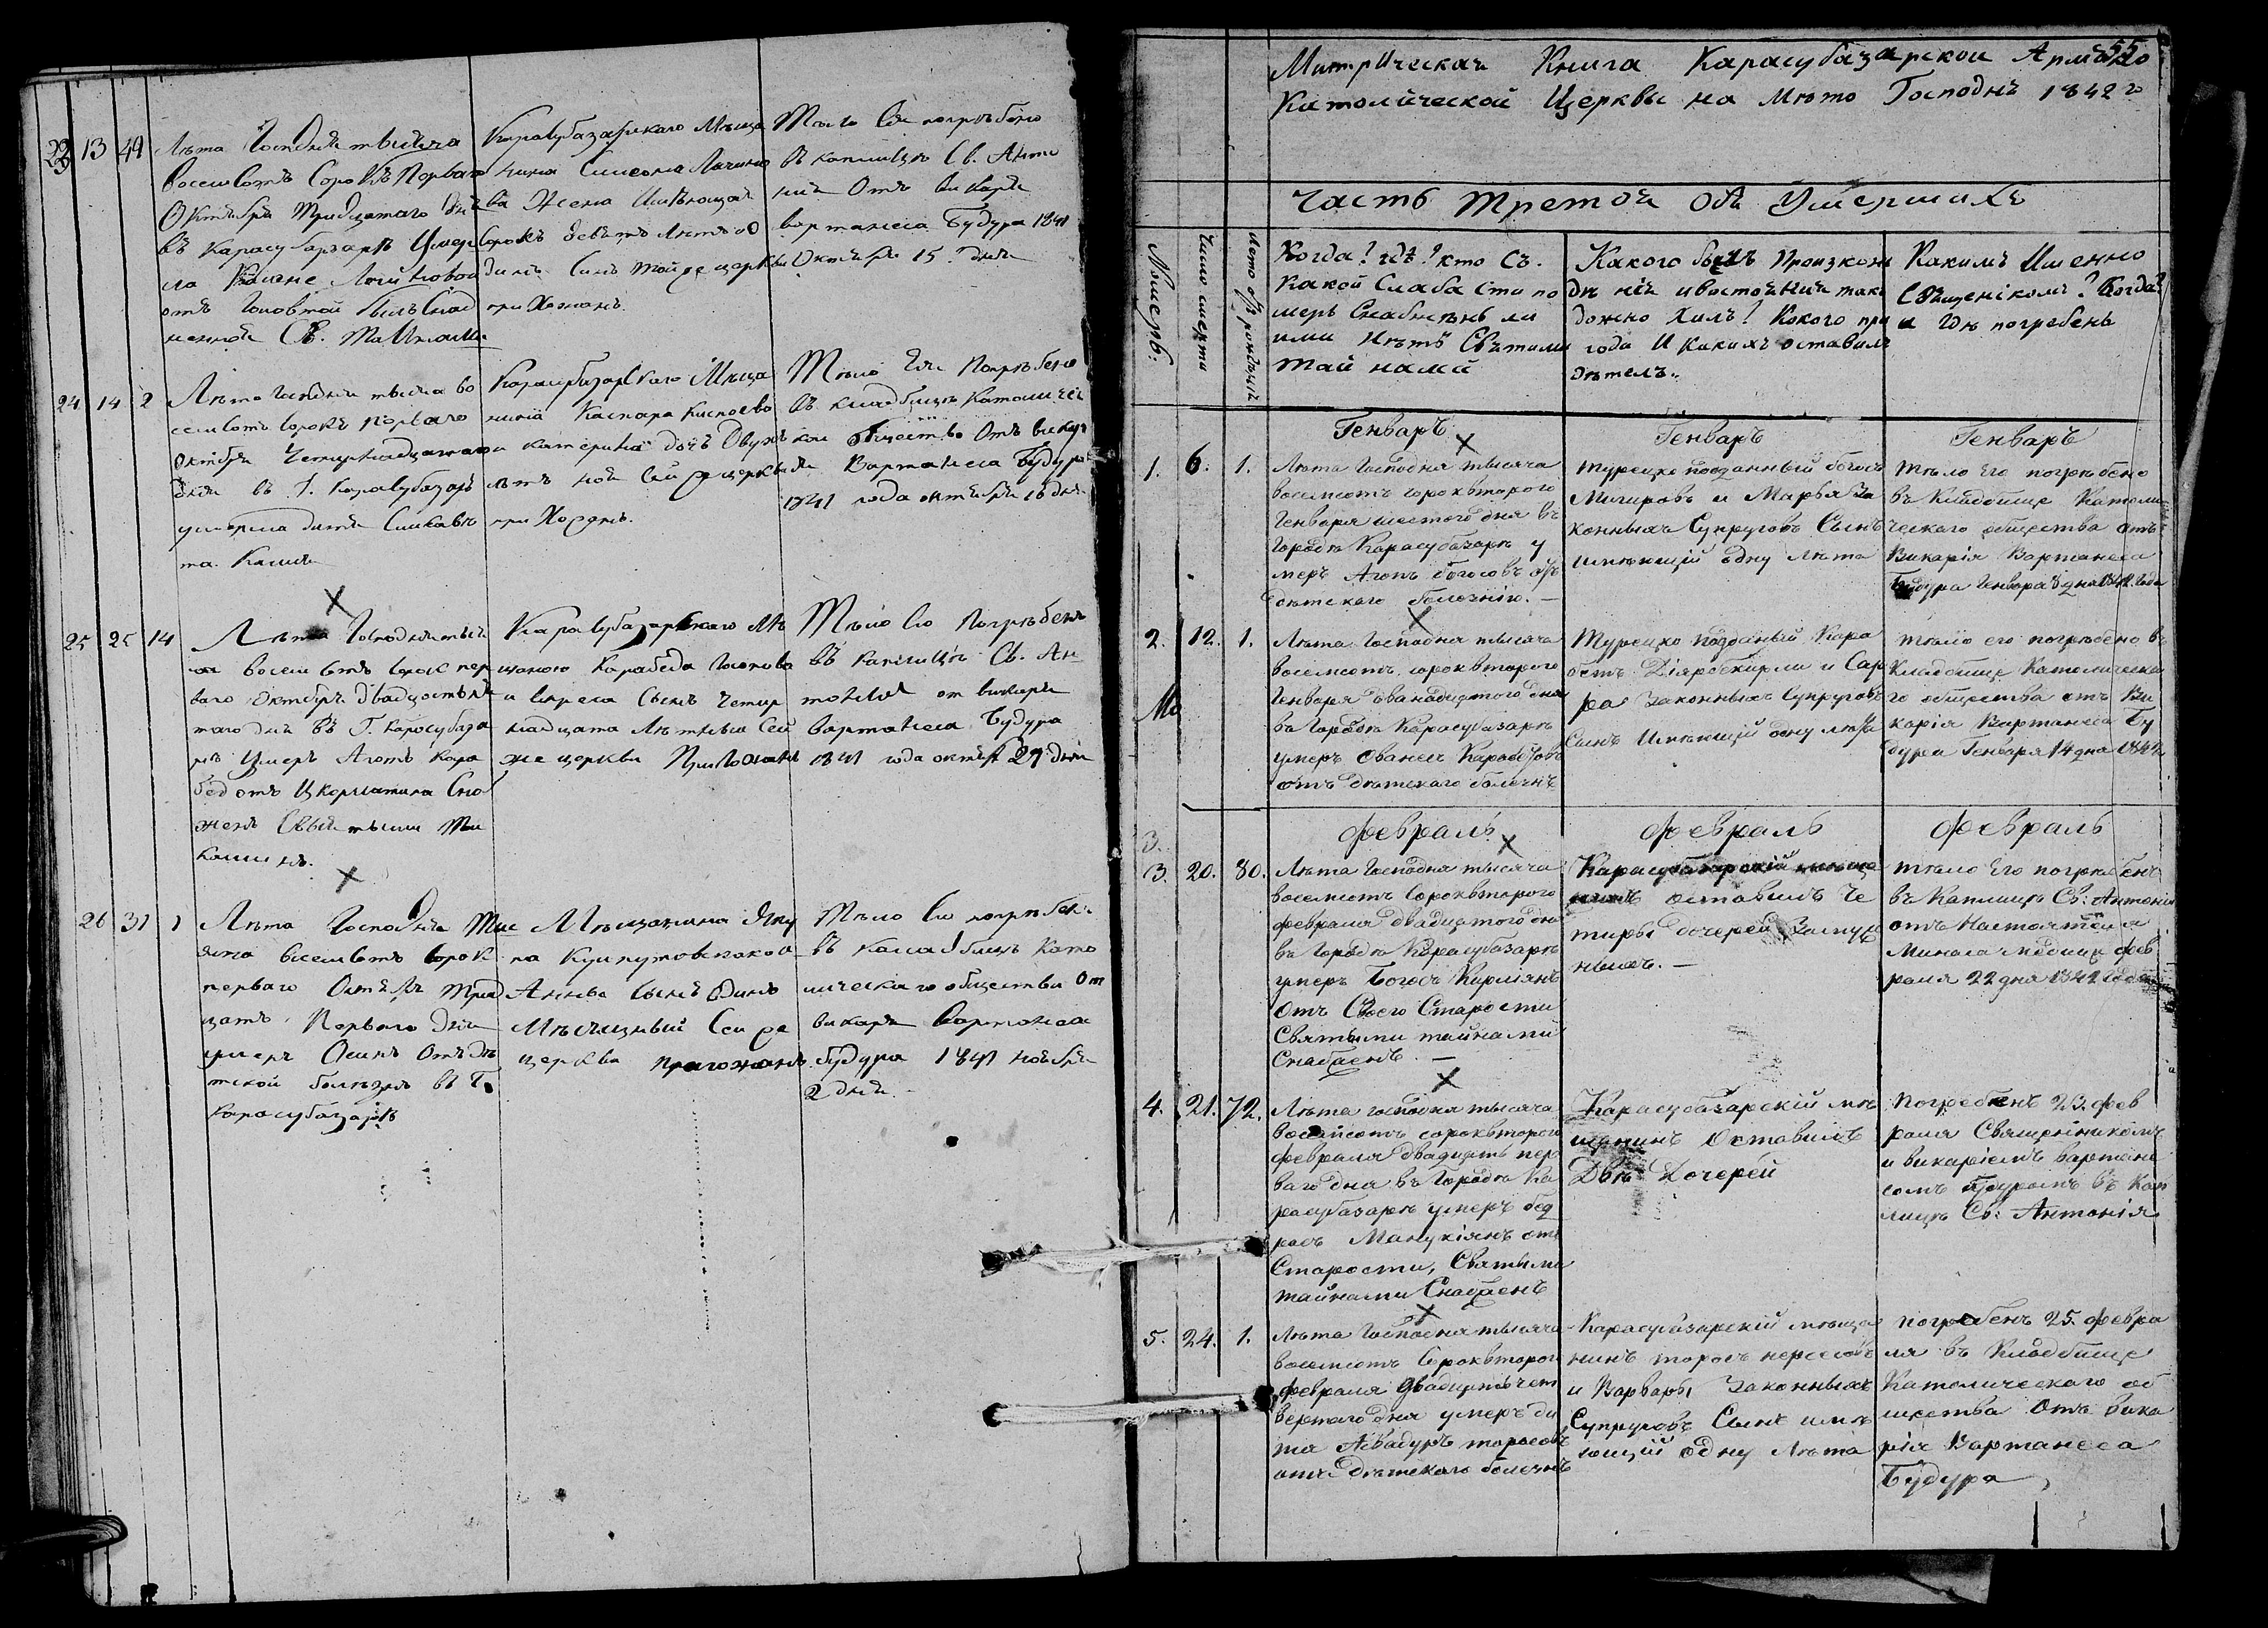 23 13 49
Лѣта Господня тысяча
восемсотъ Сорокъ Перваго
Октября тридцатаго дня
въ Карасубазарѣ Умер
ла
отъ
Св. Тайнами
Карасубазарскаго Мѣща
нина Симеона
ва Жена Имѣющая
Сорокъ девять Лѣтъ од
динъ Сынъ той же церкви
при Хожанъ.
Тѣло Ея погрѣбено
въ каплицѣ Св. Анто
нія Отъ Викарія
вартанеса Будура 1841
Октября 15 дня
24 14 2
Лѣта Господня тысяча во
семсотъ Сорокъ перваго
Октября Четирнадцатаго
дня въ Г. Карасубазарѣ
умерла дитя
та.
Карасубазарскаго Мѣща
нина Каспара
и катерина дочъ Двухъ
лѣтъ ной Сей же церкви
при Хожанъ.
Тѣло Ея Погрѣбено
въ кладбищѣ Католичес
кои Общество Отъ викар
ія Вартанеса Будура
1841 года октября 16 дня
25 25 14
Лѣта Господня тыся
ча восемсотъ сорок пер
ваго Октября двадцать пя
таго дня въ Г. Карасубаза
рѣ Умеръ Агопъ Кара
бед отъ
женъ Святыми Та
Карасубазарскаго Мѣ
щаного Карабеда
и Сынъ Четир
надцата Лѣтны Сей
же церкви Прихожанъ
Тѣло Ею Погрѣбенъ
въ Каплицѣ Св. Ан
тонія от викарія
вартанеса Будура
1841 года октября 27 дня
26 31 1
Лѣта Господня Тис
яча восемсотъ сорок
перваго Октября Трид
цать Перваго Дня
умеръ Осипъ Отъ дѣ
тской болѣзня въ Г.
Карасубазарѣ
Мѣщанина Яку
па
Аннова Сынъ Одинъ
Мѣсячный Сей же
церква прихожанъ
Тѣло Ею погрѣбен
въ Кладбищѣ Като
лическаго общества От
викарія Вартанеса
Будура 1841 ноября
2 дня.
55
Митрическая Книга Карасубазарской Армяно
Католической Церквы на Лѣто Господнѣ 1842 го
Часть Третоя Объ Умершихъ
Нумеръ.
Число смерти
Лѣто отъ рожденія
Когда? гдѣ? кто Съ.
Какой Слаба Сти по
меръ Снабженъ ли
ими Нѣтъ Святими
Тай нами
Какого былъ Произхож
де ніи ивостоянии так
дожно Хилъ! Кокого при
года И какихъ оставилъ
дѣтелъ.
Какимъ Именно
Священікомъ? Когда?
и Гдѣ погребенъ
Генваръ Генваръ Генваръ
1. 6. 1.
Лѣта Господня тысяча
восемсотъ сороквторого
Генваря шестого дня въ
Городѣ Карасубазарѣ у
меръ Агопъ богосовъ отъ
дѣтскаго болезнію. —
Турецко подданный богосъ
Мигировъ и Марья За
конныхъ Супруговъ Сынъ
имѣющій одну Лѣта
Тѣло Его погрѣбено
въ Кладбище Католи
ческаго общества отъ
Викарія Вартанеса
Будура Генвара 8 дня 1842 года
2. 12. 1.
Лѣта Господня тысяча
восемсотъ сороквторого
Генваря дванадцатого дня
въ Городѣ Карасубазарѣ
умеръ Ованес Карабедовъ
отъ дѣтскаго болезнѣ
Турецко поддоный Кара
бетъ Діярбекирли и Сар
ра Законныхъ Супруговъ
Сынъ Имѣющій одну лѣта
тѣло его погрѣбено въ
Кладбище Католическа
го общества отъ Ви
карія Вартанеса Бу
дура Генваря 14 дня 1842
Мо
Февраль Февраль Февраль
3.
3. 20. 80.
Лѣта Господня тысяча
восемсотъ Сороквторого
февраля двадцатого дня
въ Городѣ Карасубазарѣ
умеръ Богосъ Кирміянъ
Отъ Своего Старости
Святыми тайнами
Снабженъ. —
Карасубазарскій мѣща
нинъ оставилъ Че
тиры дочерей Замуж
ныхъ. —
тѣло Его погрѣбенъ
въ Каплицѣ Св: Антонія
отъ Настоятеля
Минаса Медиция фев
раля 22 дня 1842 года
4. 21. 72.
Лѣта господня тысяча
восемсотъ сороквторого
февраля двадцать пер
ваго дня въ Городѣ Ка
расубазарѣ умеръ бед
росъ Манукіянъ отъ
Старости, Святыми
тайнами Снабженъ
Карасубазарскій мѣ
щанинъ Оставилъ
Двѣ Дочерей
погребенъ 23. фев
раля Священникомъ
и викаріемъ вартане
сомъ Будуромъ въ Кап
лицѣ Св: Антонія
5. 24. 1.
Лѣта Господня тысяча
восемсотъ Сороквторого
февраля двадцать чет
вертаго дня умеръ ди
тя Асвадуръ торосовъ
отъ дѣтскаго болезнѣ
Карасубазарскій мѣща
нинъ торосъ нерсесовъ
и Варвары Законныхъ
Супруговъ Сынъ имѣ
ющій одну Лѣта
погребенъ 25. февра
ля въ Кладбище
Католическаго об
щества Отъ Вика
рія Вартанеса
Будура